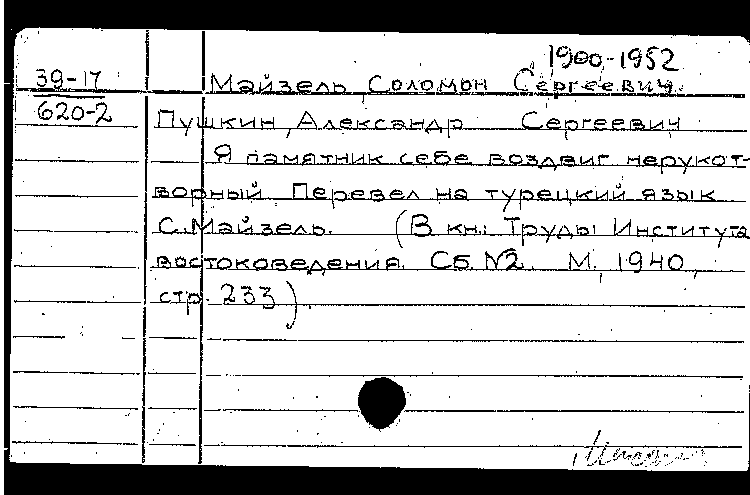 1900-1952
39-17 Майзель, Соломон Сергеевич.
620-2
Пушкин, Александр Сергеевич
Я памятник себе воздвиг нерукот-
ворный. Перевел на турецкий язык
С. Майзель. (В кн.: Труды Института
востоковедения. Сб. №2. М., 1940,
стр. 233).